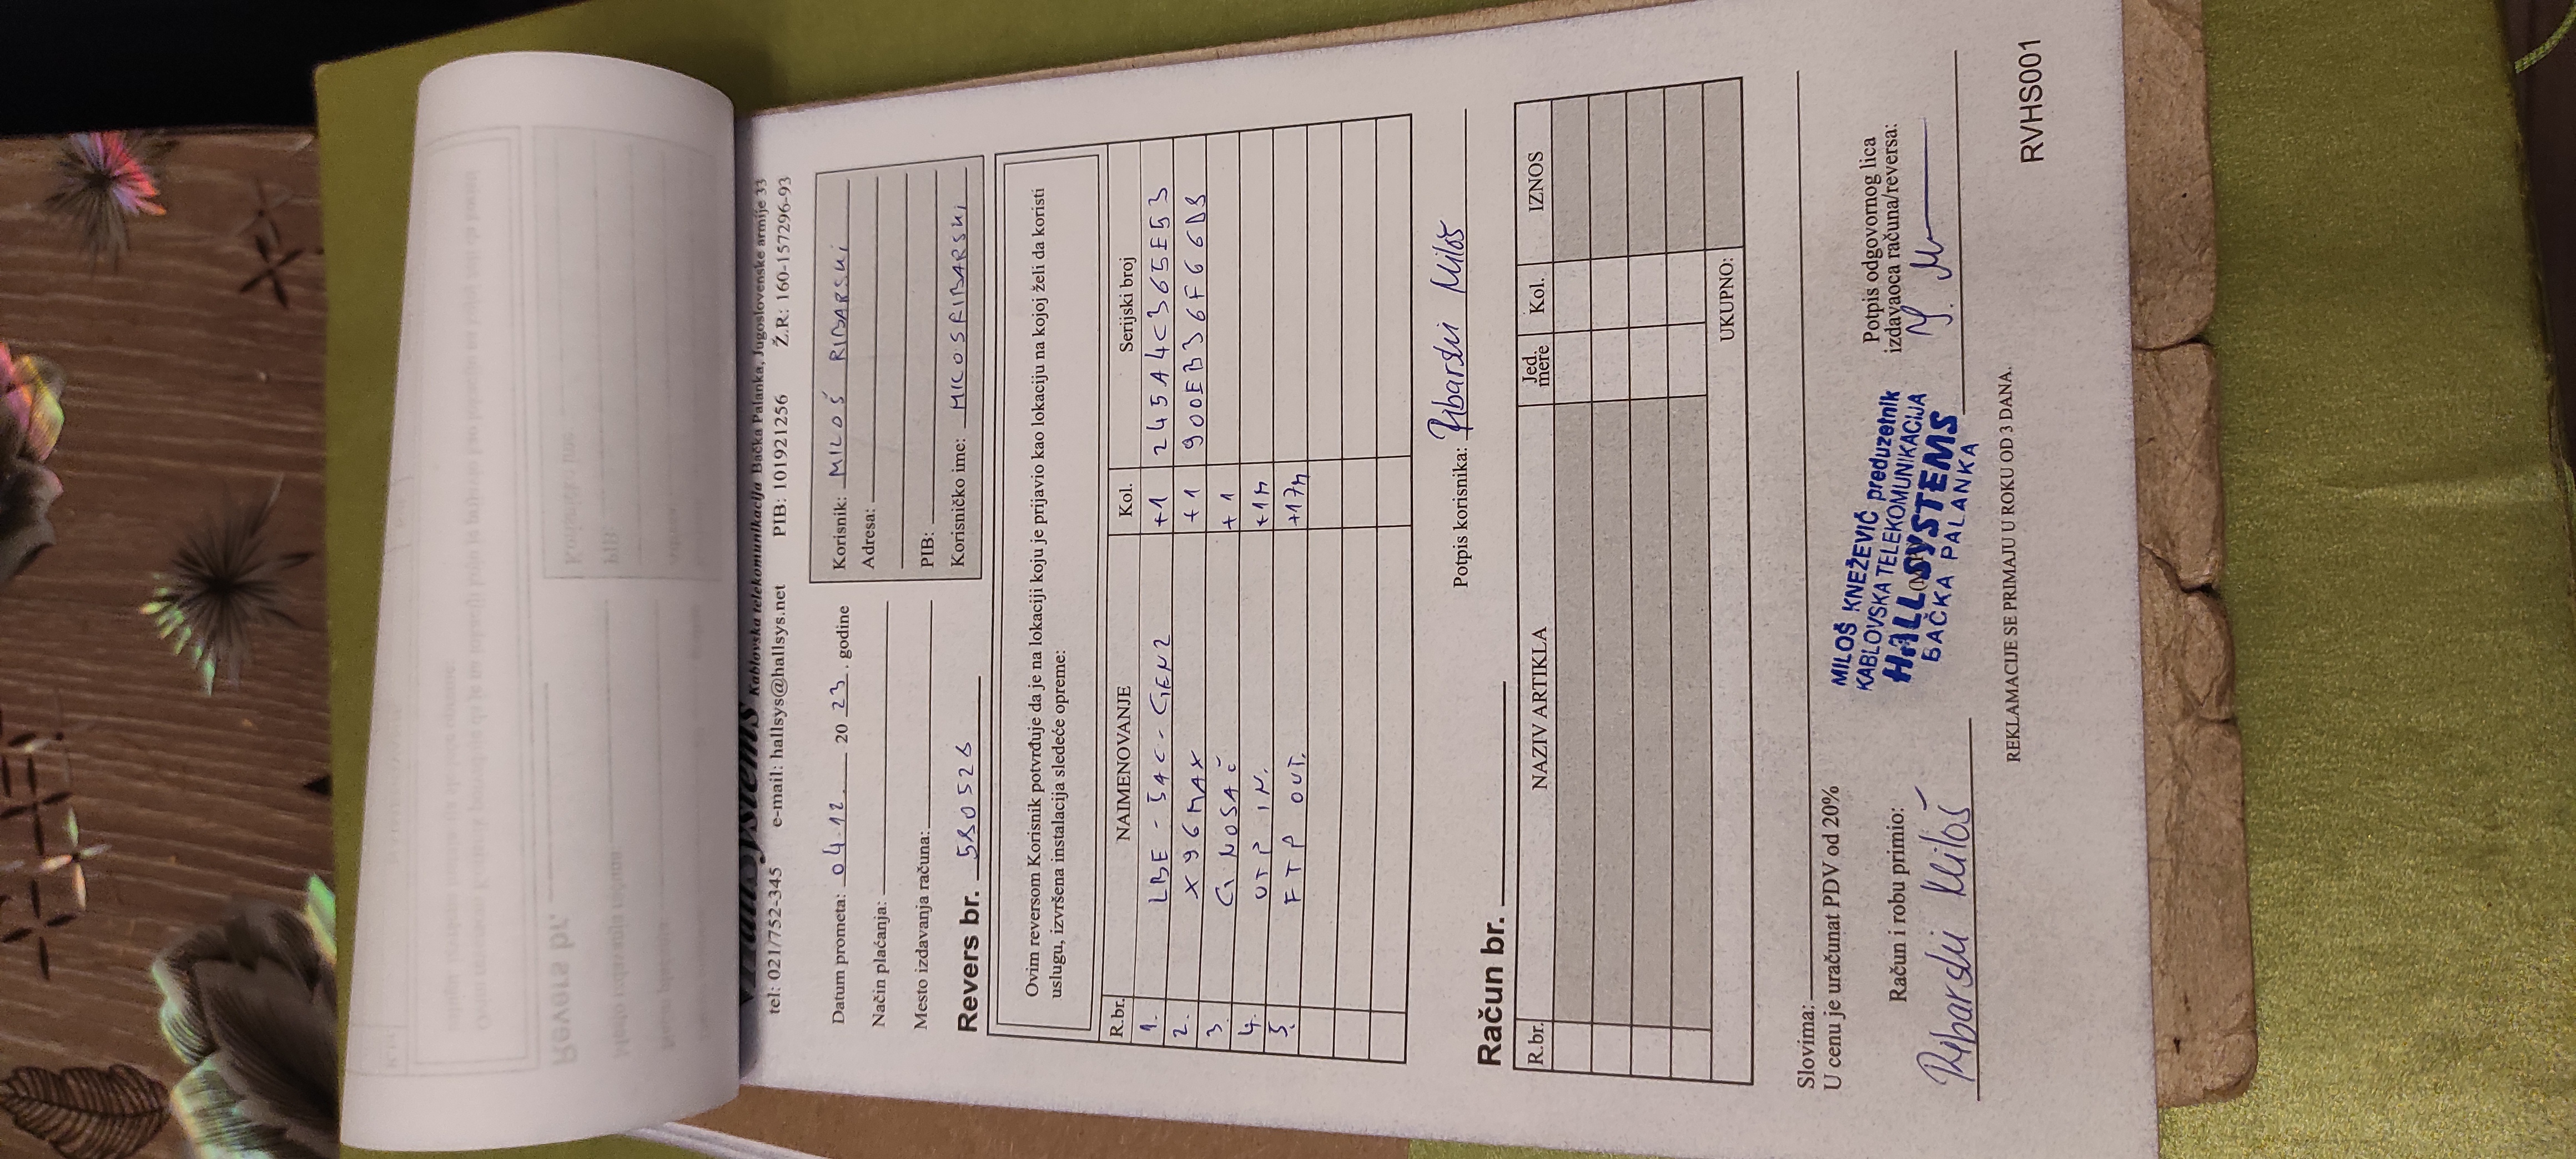 HallSystems Kablovska telekomunikacija Bačka Palanka, Jugoslovenske armije 33
tel: 021/752-345 e-mail: hallsys@hallsys.net PIB: 101921256 Ž.R: 160-157296-93
Datum prometa: 04.12. 2023. godine
Način plaćanja:
Mesto izdavanja računa:
Revers br.
Korisnik: MILOŠ RIBARSKI
Adresa:
PIB:
Korisničko ime: MILOSRIBARSKI
Ovim reversom Korisnik potvrđuje da je na lokaciji koju je prijavio kao lokaciju na kojoj želi da koristi
uslugu, izvršena instalacija sledeće opreme:
R.br. NAIMENOVANJE Kol. Serijski broj
1. LBE-5AC-GEN2 +1 245A4C365E53
2. X96MAX +1 900EB36F66DB
3. G NOSAČ +1
4. UTP IN. +1m
5. FTP OUT. +17m
Potpis korisnika: Ribarski Miloš
Račun br.
R.br. NAZIV ARTIKLA Jed. mere Kol. IZNOS
UKUPNO:
Slovima:
U cenu je uračunat PDV od 20%
Račun i robu primio:
Ribarski Miloš
MILOŠ KNEŽEVIĆ preduzetnik
KABLOVSKA TELEKOMUNIKACIJA
HALL SYSTEMS
BAČKA PALANKA
Potpis odgovornog lica
izdavaoca računa/reversa:
REKLAMACIJE SE PRIMAJU U ROKU OD 3 DANA.
RVHS001